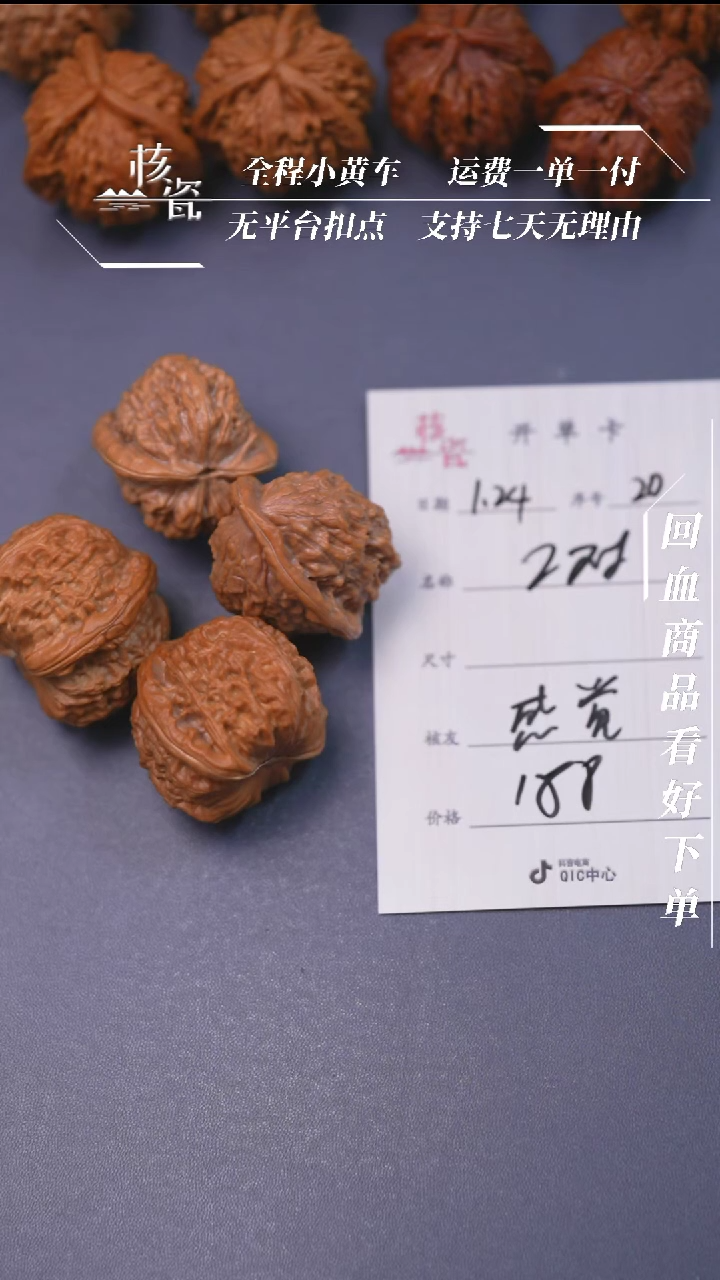 核瓷
全程小黄车 运费一单一付
无平台扣点 支持七天无理由
核瓷 开单卡
日期 1.24 序号 20
名称 2对
尺寸
核友 感觉
价格 188
抖音电商
QIC中心
回血商品看好下单